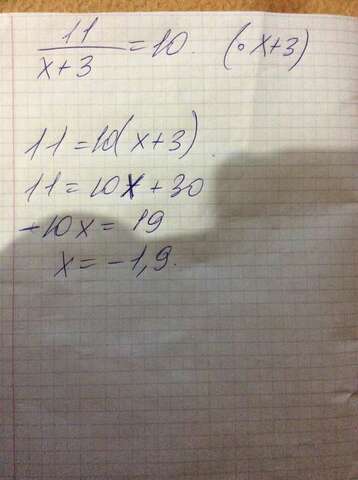 11/(x+3) = 10. (· x+3)
11 = 10(x+3)
11 = 10x + 30
-10x = 19
x = -1,9.